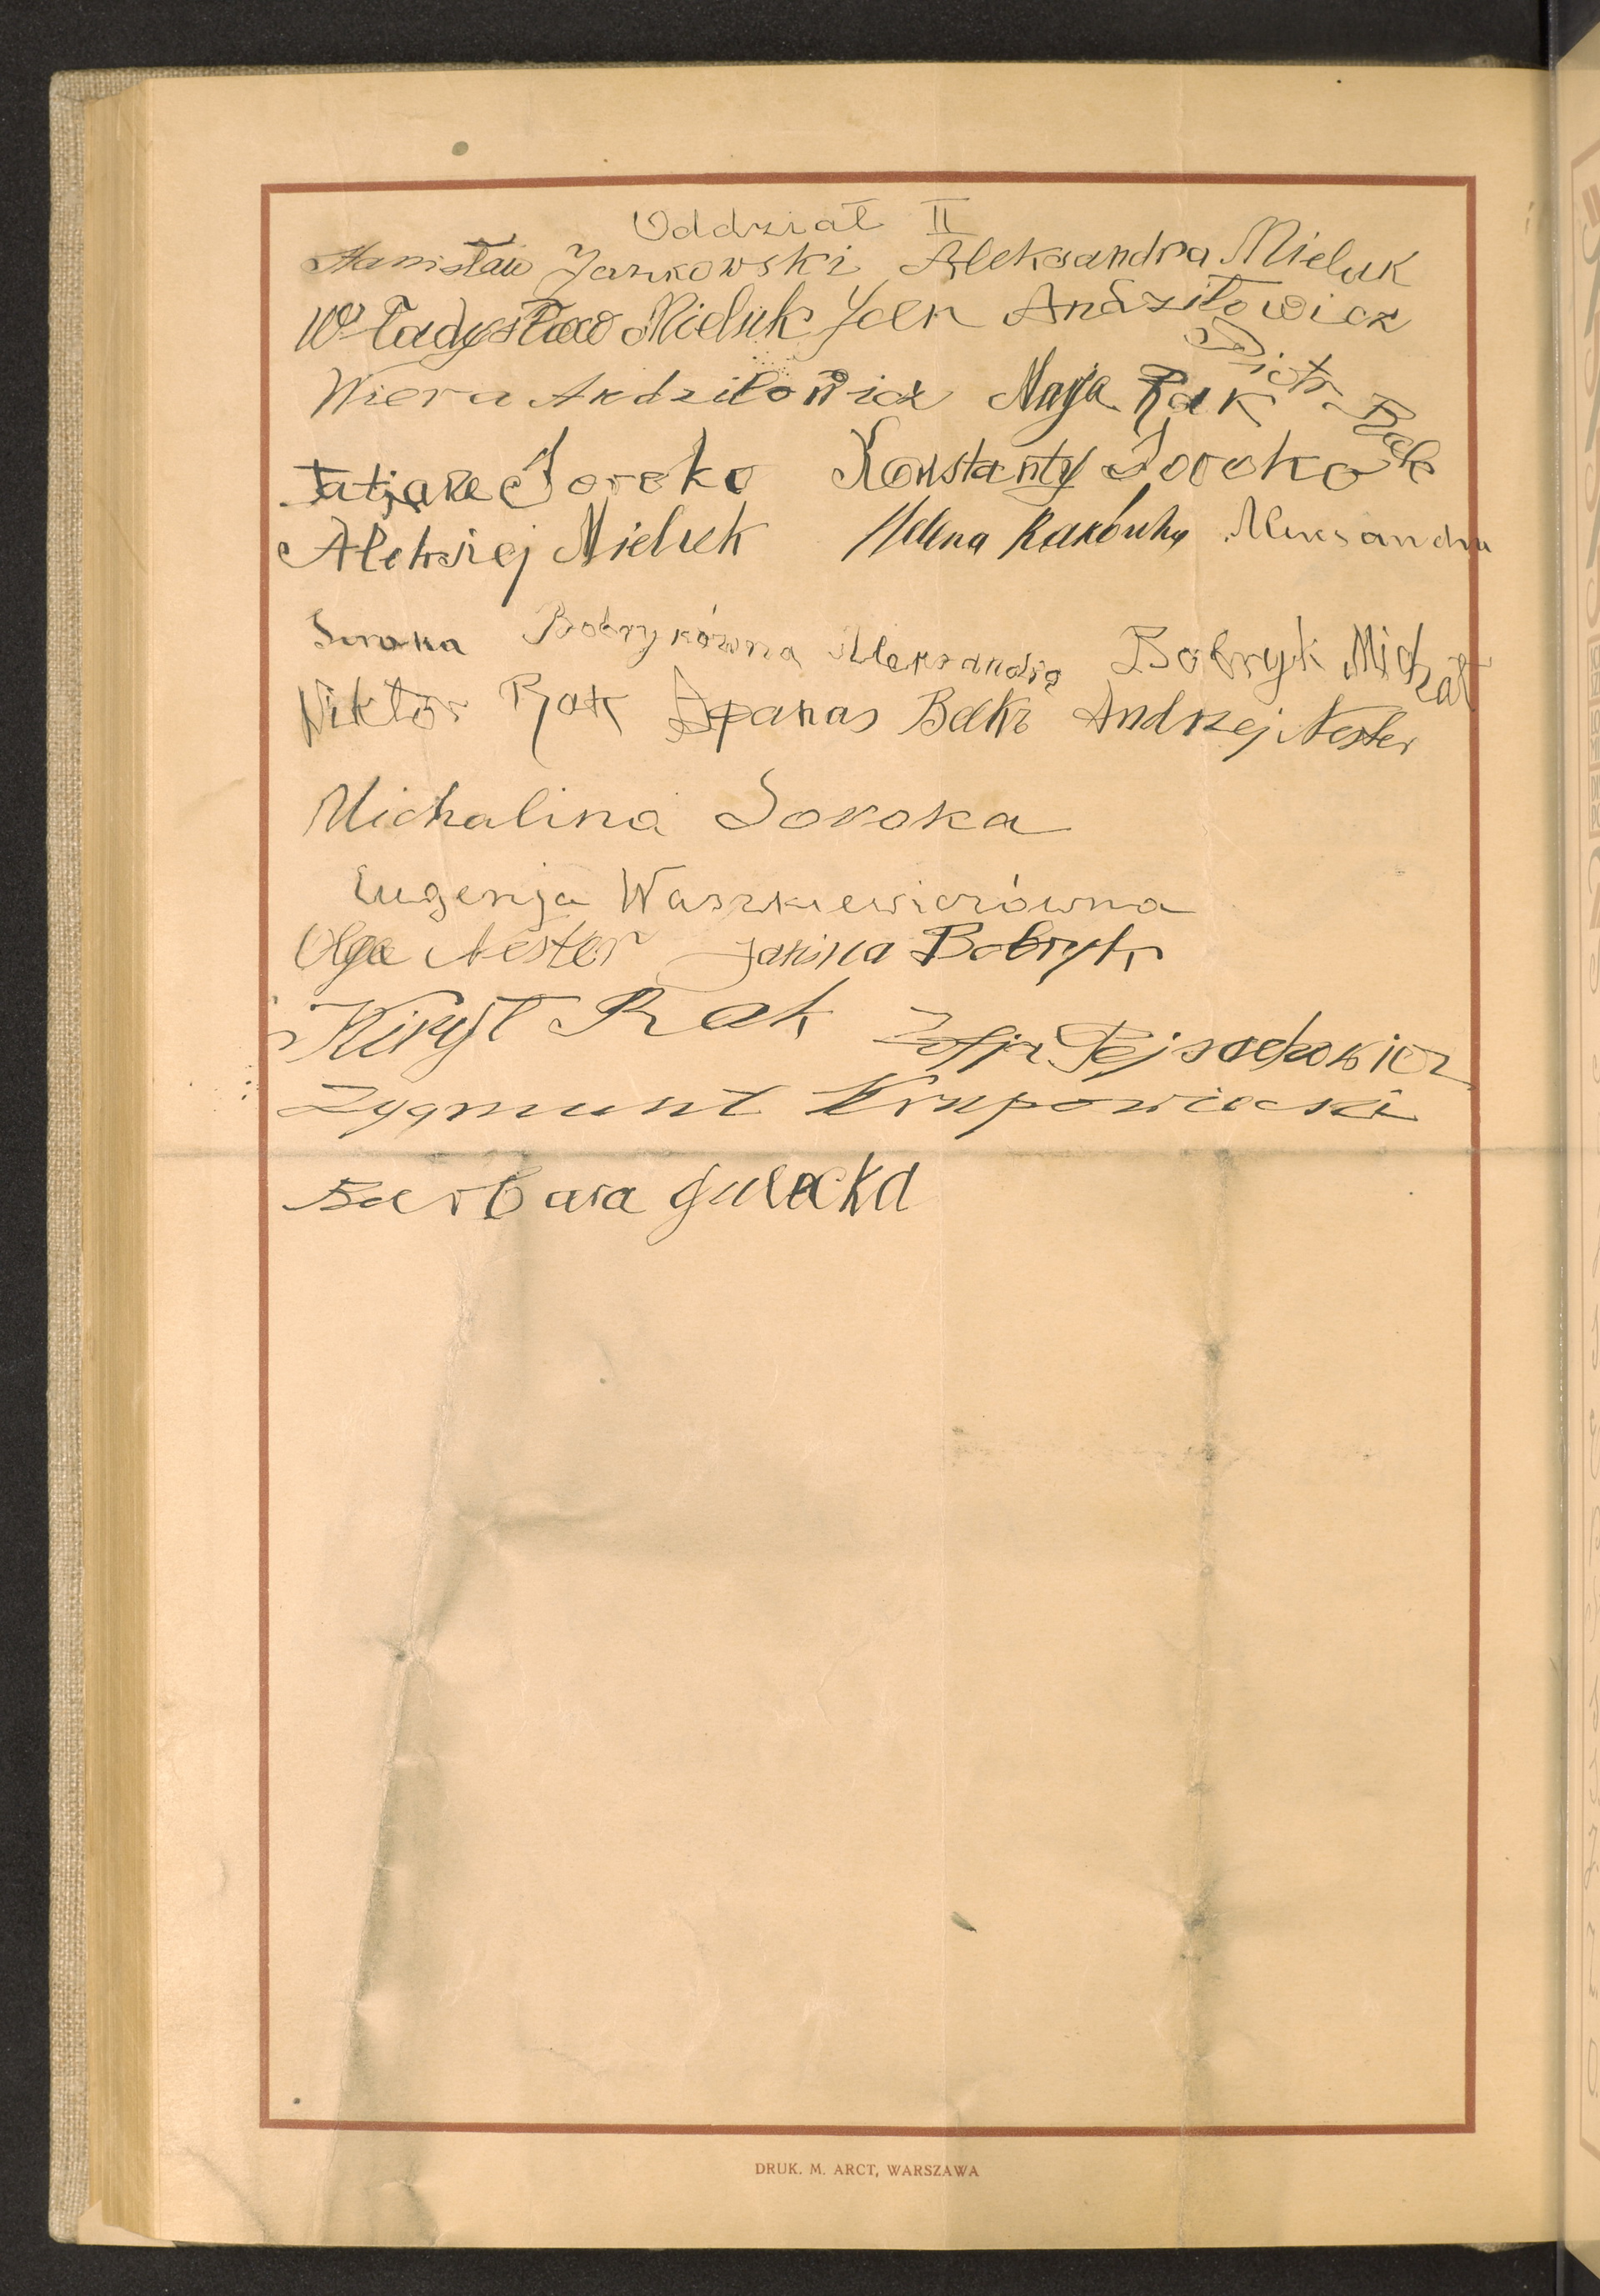 Oddział II
Stanisław Jaszkowski Aleksandra Mieluk
Władysław Mieluk Jan Andziłowicz
Wiera Andziłowicz Marja Rak Piotr Rak
Tatjana Soroko Konstanty Soroko
Aleksiej Mieluk Helena Rakówna Aleksandra
Soroka Bobrykówna Aleksandra Bobryk Michał
Wiktor Rak Apanas Rak Andrzej Nester
Michalina Soroka
Eugenja Waszkiewiczówna
Olga Nester Janina Bobryk
Kirył Rak Zofja Pejsachowicz
Zygmunt Krupowiecki
Barbara Gulecka
DRUK. M. ARCT, WARSZAWA